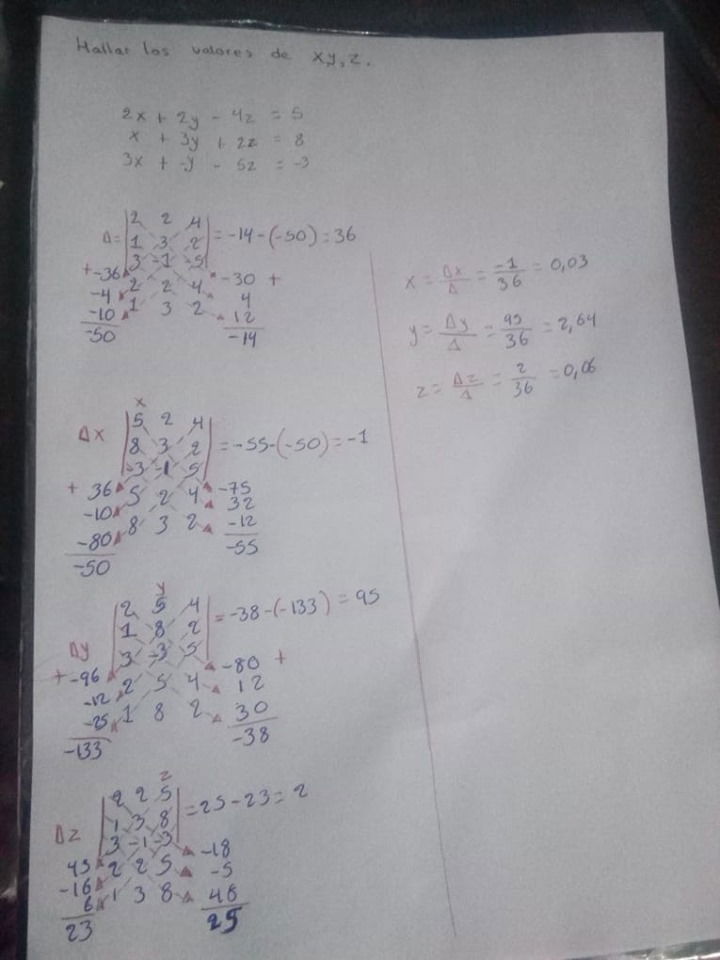 Hallar los valores de xy,z.
2x + 2y - 4z = 5
x + 3y + 2z = 8
3x + -y - 5z = -3
Δ= |2 2 4|
|1 3 2| = -14-(-50) = 36
|3 -1 -5|
+ -36 2 2 4 -30 +
-4 1 3 2 4
-10 12
-50 -14
x
Δx |5 2 4|
|8 3 2| = -55-(-50) = -1
|-3 -1 5|
+ 36 5 2 4 -75
-10 8 3 2 32
-80 -12
-50 -55
y
Δy |2 5 4|
|1 8 2| = -38-(-133) = 95
|3 -3 5|
+ -96 2 5 4 -80 +
-12 1 8 2 12
-25 30
-133 -38
z
Δz |2 2 5|
|1 3 8| = 25-23 = 2
|3 -1 -3|
45 2 2 5 -18
-16 1 3 8 -5
6 48
23 25
x = Δx/Δ = -1/36 = 0,03
y = Δy/Δ = 95/36 = 2,64
z = Δz/Δ = 2/36 = 0,06